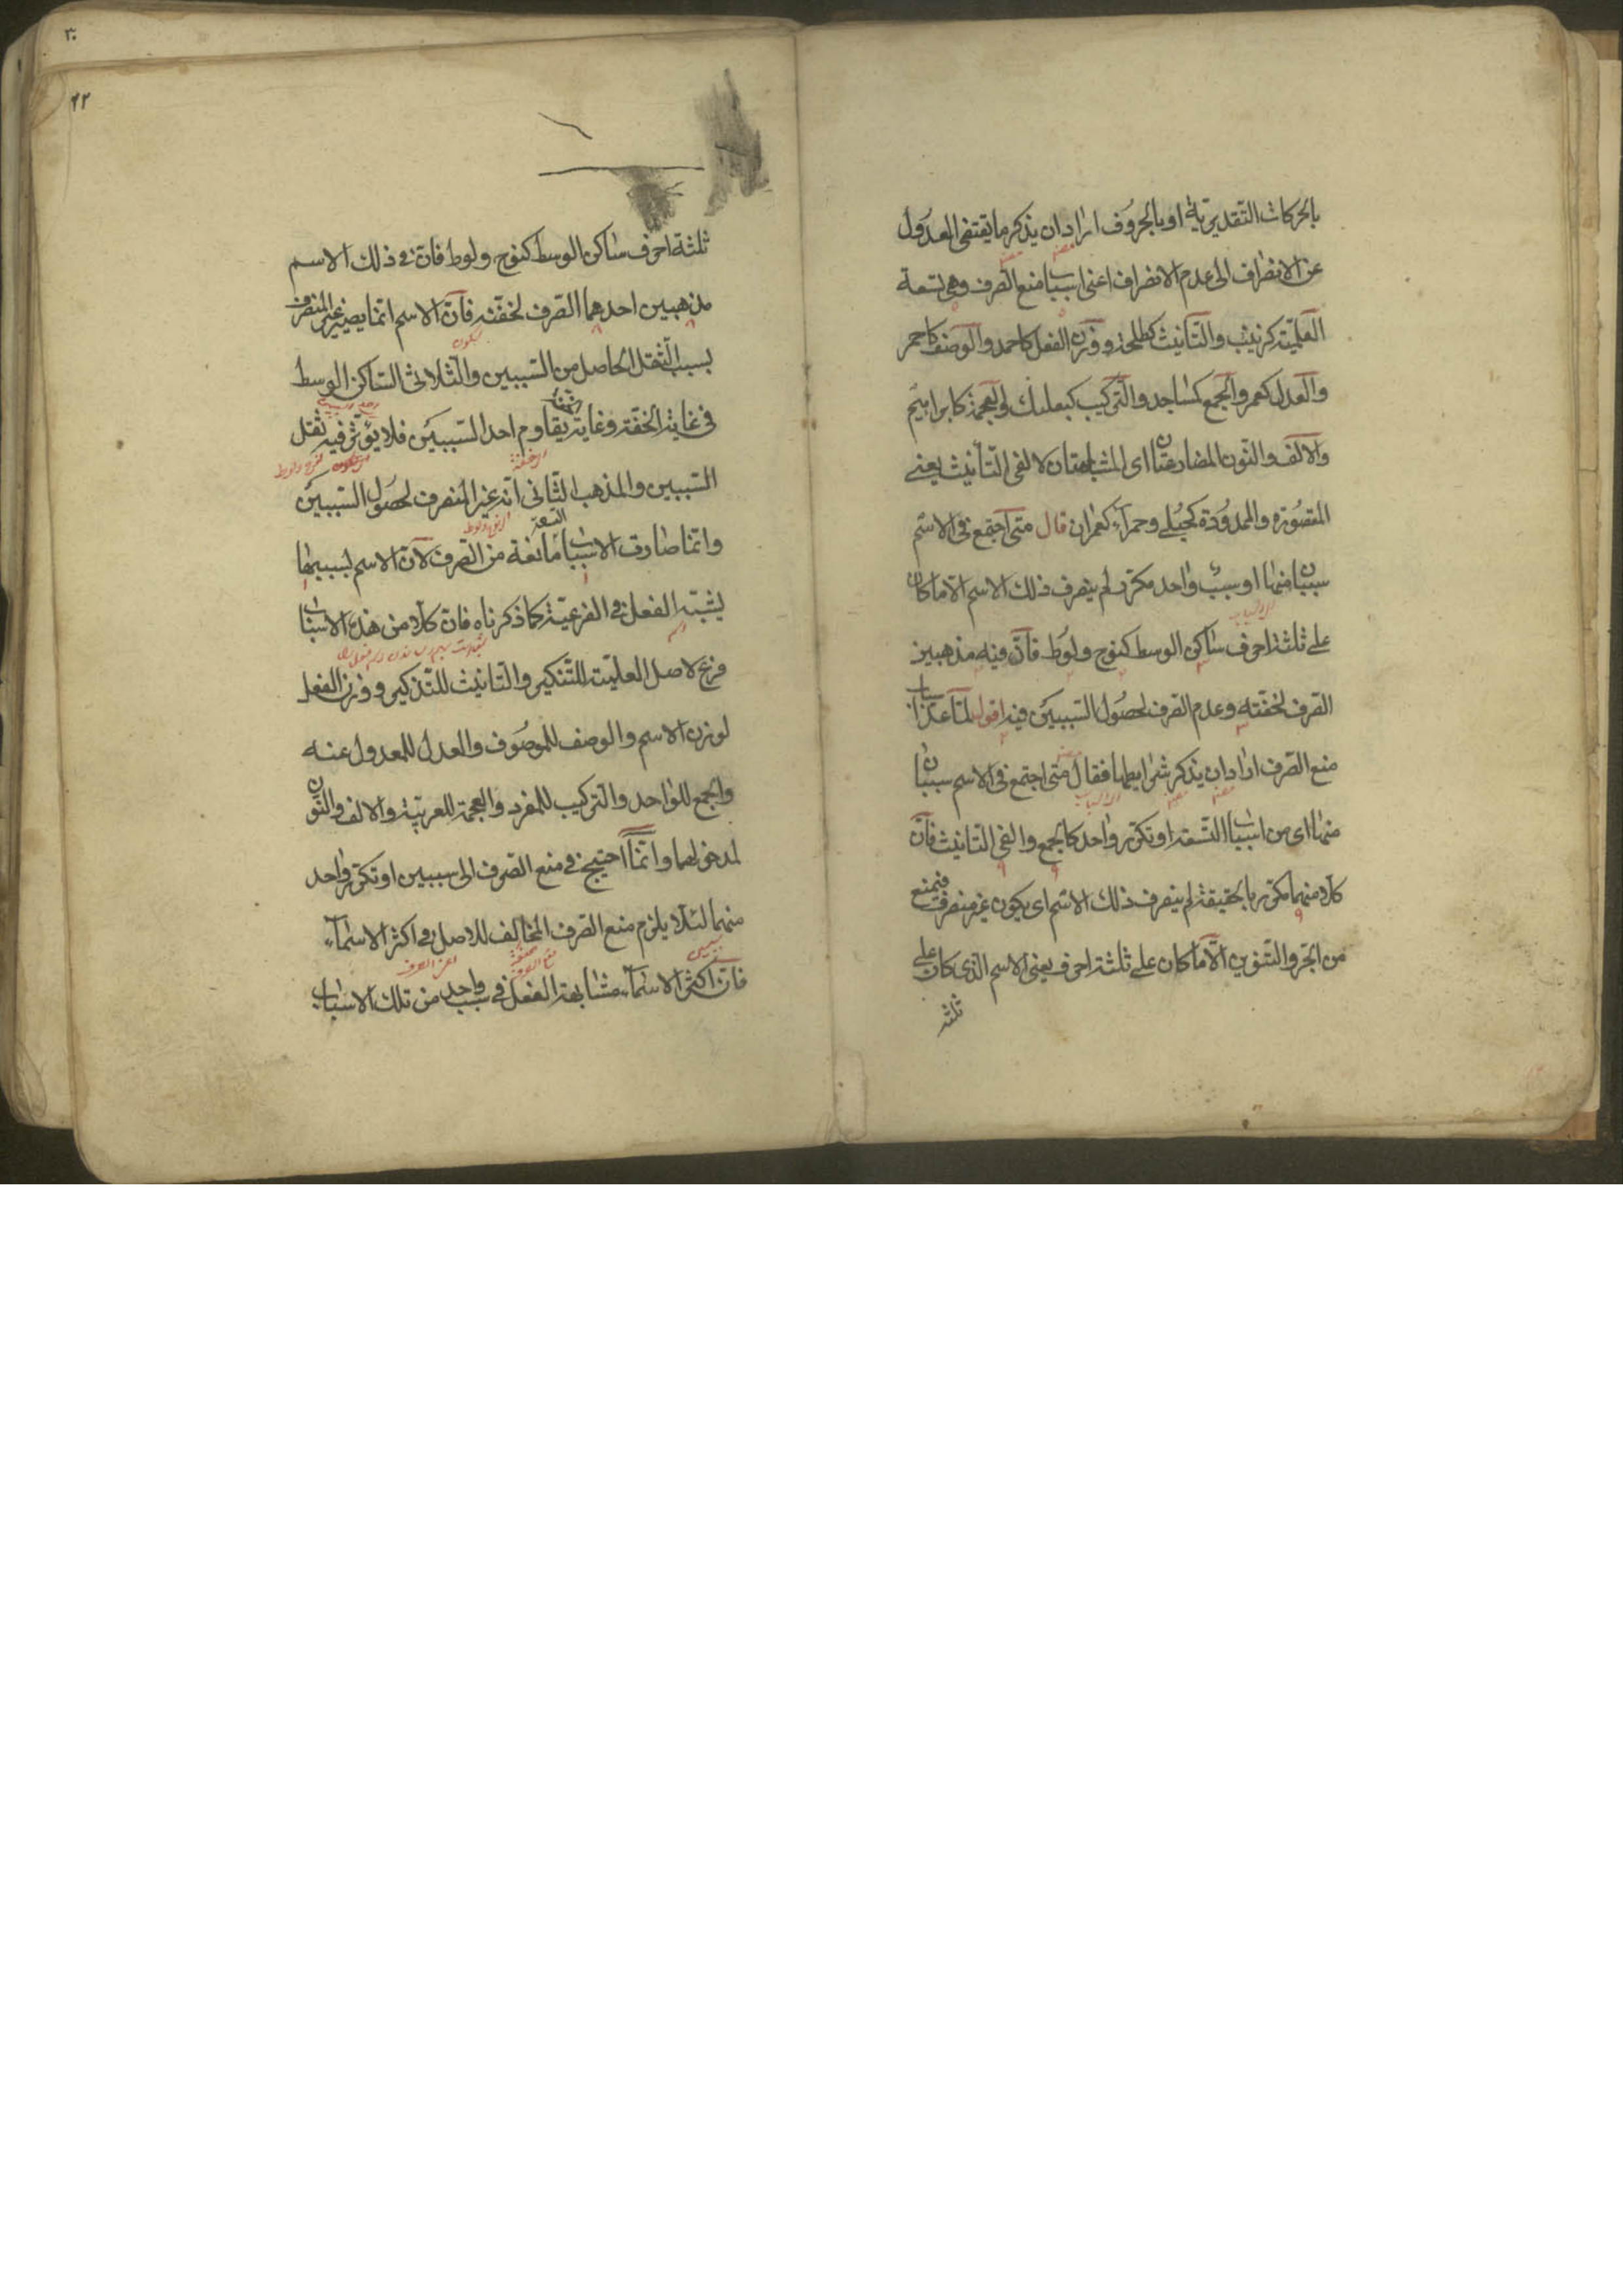 بالحركات التقديرية او بالحروف اراد ان يذكر ما يقتضى العدول
عن الانصراف الى عدم الانصراف اعنى اسباب منع الصرف وهى تسعة
العلميّة كزينب والتأنيث كطلحة ووزن الفعل كاحمد والوصف كاحمر
والعدل كعمر والجمع كمساجد والتركيب كبعلبك والعجمة كابراهيم
والالف والنون المضارعتان اى المشابهتان لالفى التأنيث يعنى
المقصورة والممدودة كحبلى وحمرآء كعمران قال متى اجتمع فى الاسم
سببان منها او سبب واحد مكرّر لم ينصرف ذلك الاسم الّا ما كان
على ثلثة احرف ساكن الوسط كنوح ولوط فانّ فيه مذهبين
الصرف لخفّته وعدم الصرف لحصول السببين فيه اقول لمّا عدّ اسباب
منع الصرف اراد ان يذكر شرايطها فقال متى اجتمع فى الاسم سببان
منها اى من اسباب التسعة او تكرّر واحد كالجمع والفى التأنيث فانّ
كلّا منهما مكرّر بالحقيقة لم ينصرف ذلك الاسم اى يكون غير منصرف فيمنع
من الجرّ والتنوين الّا ما كان على ثلثة احرف يعنى الاسم الذى كان على
ثلثة
٣٠
٢٢
ثلثة احرف ساكن الوسط كنوح ولوط فانّ فى ذلك الاسم
مذهبين احدهما الصرف لخفّته فانّ الاسم انّما يصير غير المنصرف
بسبب الثقل الحاصل من السببين والثلاثى الساكن الوسط
فى غاية الخفّة وغاية يقاوم احد السببين فلا يؤثّر فيه ثقل
السببين والمذهب الثانى انّه غير المنصرف لحصول السببين
وانّما صارت الاسباب التسعة مانعة من الصرف لانّ الاسم بسببها
يشبه الفعل فى الفرعيّة كما ذكرناه فانّ كلّا من هذه الاسباب
فرع لاصل العلميّة للتنكير والتأنيث للتذكير ووزن الفعل
لوزن الاسم والوصف للموصوف والعدل للمعدول عنه
والجمع للواحد والتركيب للمفرد والعجمة للعربيّة والالف والنون
لمدخولهما وانّما احتيج فى منع الصرف الى سببين او تكرّر واحد
منهما لئلّا يلزم منع الصرف المخالف للاصل فى اكثر الاسمآء
فانّ اكثر الاسمآء مشابهة الفعل فى سبب واحد من تلك الاسباب